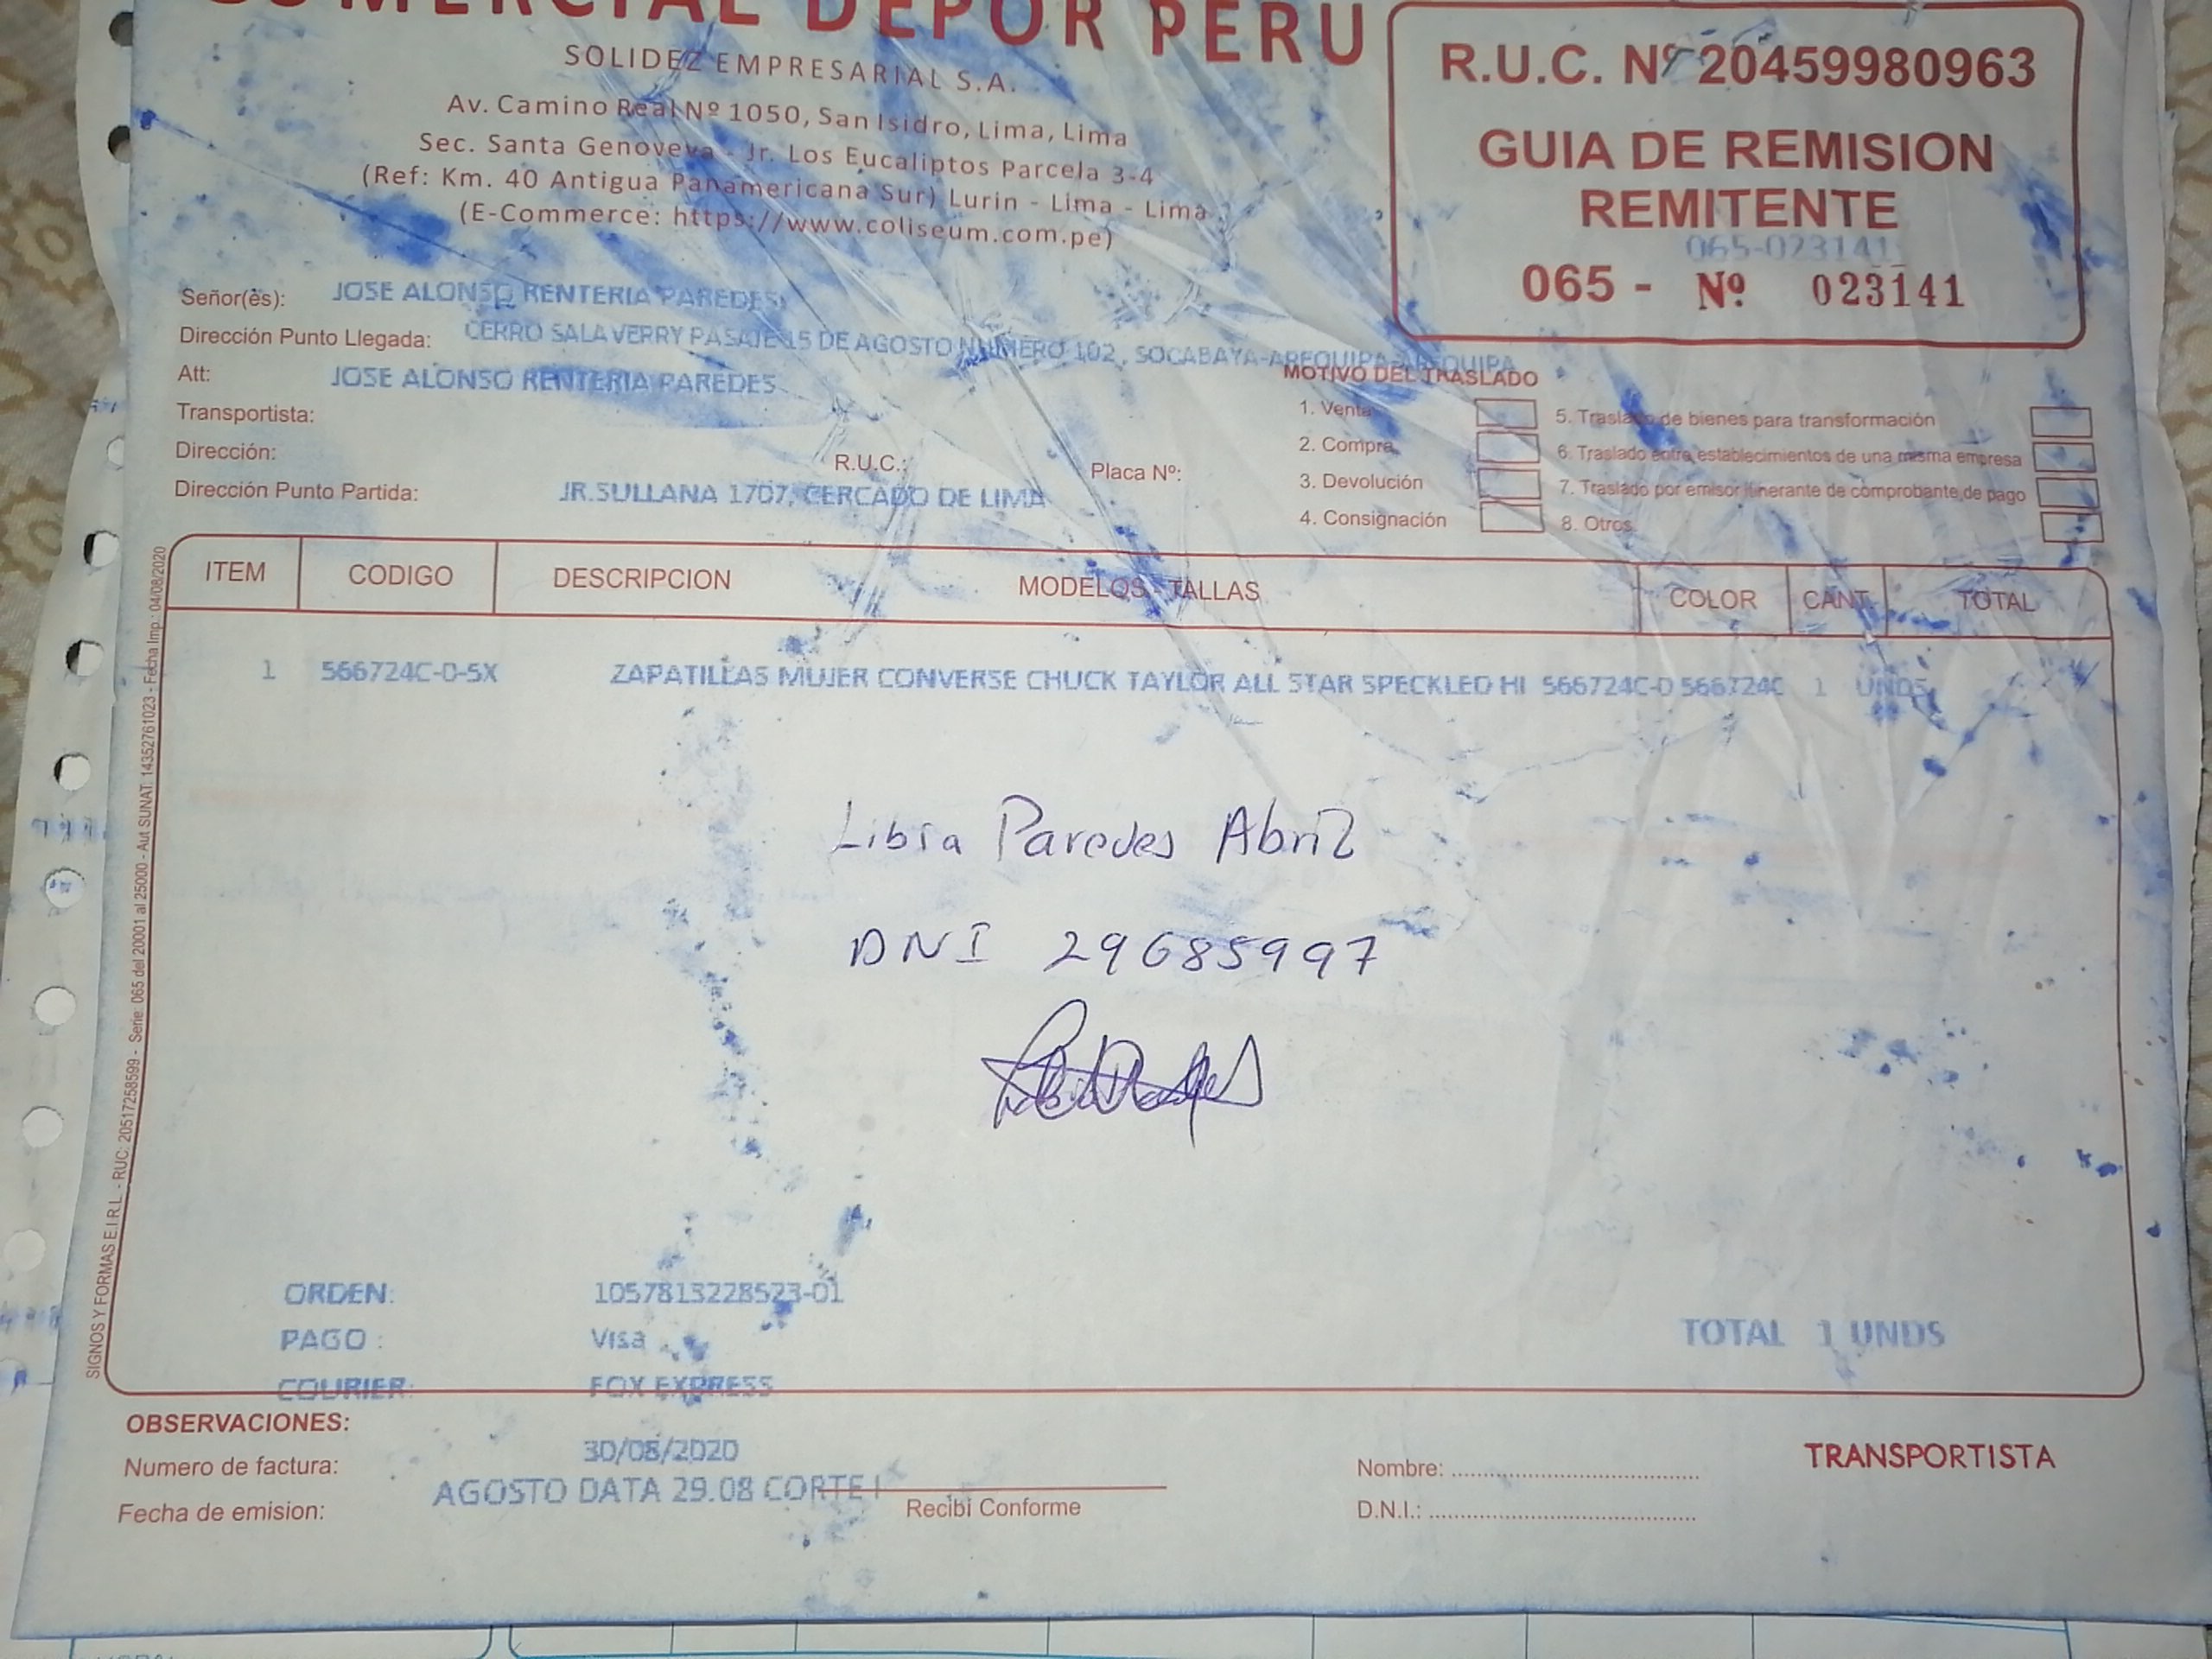 COMERCIAL DEPOR PERU
SOLIDEZ EMPRESARIAL S.A.
Av. Camino Real Nº 1050, San Isidro, Lima, Lima
Sec. Santa Genoveva - Jr. Los Eucaliptos Parcela 3-4
(Ref: Km. 40 Antigua Panamericana Sur) Lurin - Lima - Lima
(E-Commerce: https://www.coliseum.com.pe)
R.U.C. Nº 20459980963
GUIA DE REMISION
REMITENTE
065-023141
065 - Nº 023141
Señor(ès): JOSE ALONSO RENTERIA PAREDES
Dirección Punto Llegada: CERRO SALAVERRY PASAJE 15 DE AGOSTO NUMERO 102, SOCABAYA-AREQUIPA-AREQUIPA
Att: JOSE ALONSO RENTERIA PAREDES
Transportista:
Dirección:
R.U.C.:
Placa Nº:
Dirección Punto Partida: JR.SULLANA 1707, CERCADO DE LIMA
MOTIVO DEL TRASLADO
1. Venta
2. Compra
3. Devolución
4. Consignación
5. Traslado de bienes para transformación
6. Traslado entre establecimientos de una misma empresa
7. Traslado por emisor itinerante de comprobante de pago
8. Otros
ITEM CODIGO DESCRIPCION MODELOS - TALLAS COLOR CANT. TOTAL
1 566724C-0-5X ZAPATILLAS MUJER CONVERSE CHUCK TAYLOR ALL STAR SPECKLED HI 566724C-0 566724C 1 UNDS
Libia Paredes Abril
DNI 29685997
ORDEN: 1057813228523-01
PAGO : Visa
COURIER: FOX EXPRESS
TOTAL 1 UNDS
OBSERVACIONES:
30/08/2020
Numero de factura:
AGOSTO DATA 29.08 CORTE I
Fecha de emision:
Recibi Conforme
Nombre:
D.N.I.:
TRANSPORTISTA
SIGNOS Y FORMAS E.I.R.L. - RUC: 20517258599 - Serie: 065 del 20001 al 25000 - Aut SUNAT: 14352761023 - Fecha Imp.: 04/08/2020